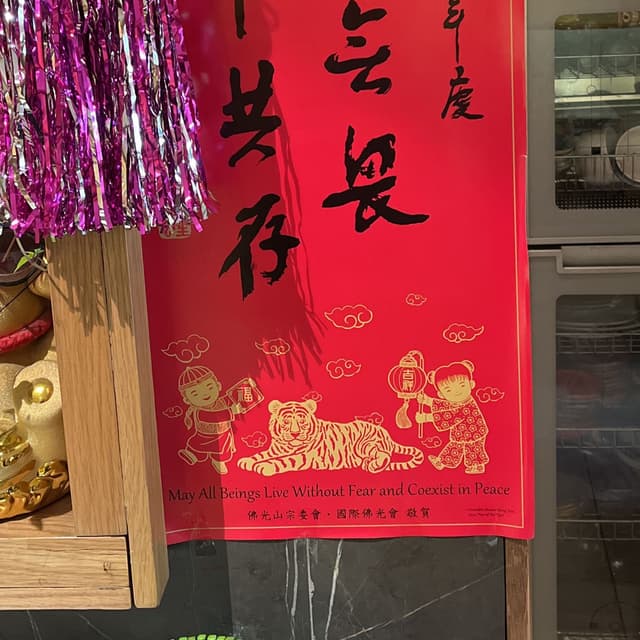 年度
無畏
共存
福
吉祥
May All Beings Live Without Fear and Coexist in Peace
佛光山宗委會・國際佛光會 敬賀